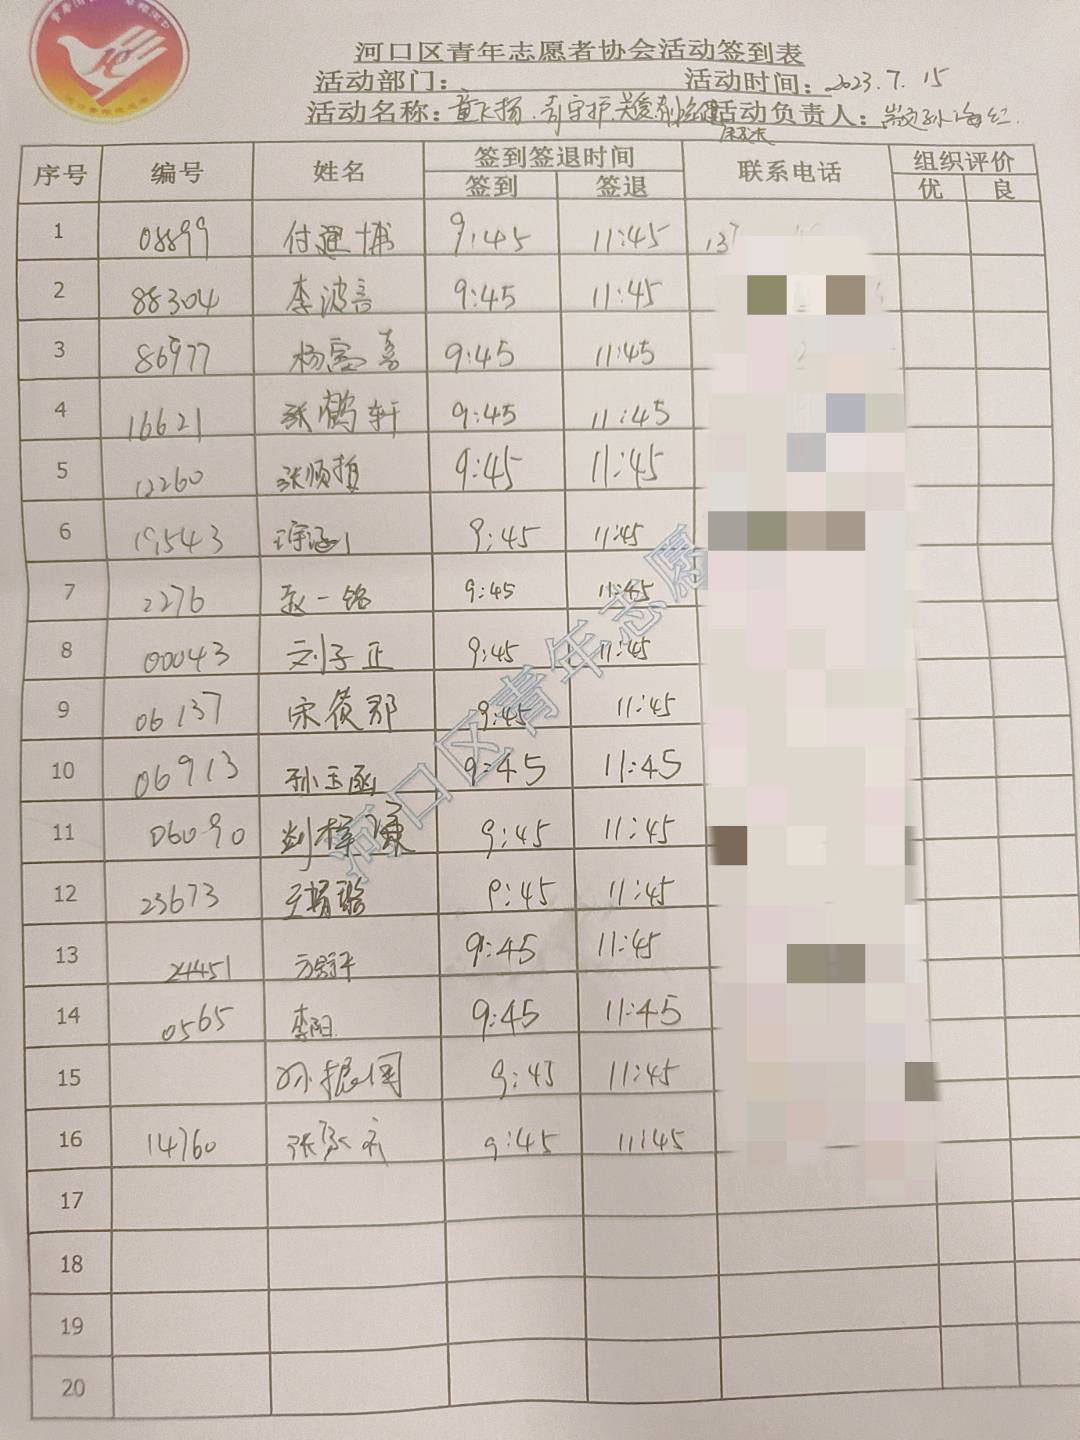 河口区青年志愿者协会活动签到表
活动部门： 活动时间：2023.7.15
活动名称：童飞扬.青守护.关爱 活动负责人： 孙海红
序号 编号 姓名 签到签退时间 联系电话 组织评价
签到 签退 优 良
1 08899 付建博 9:45 11:45 137
2 88304 李波言 9:45 11:45
3 86977 杨富喜 9:45 11:45
4 16621 张鹤轩 9:45 11:45
5 12260 张顺 9:45 11:45
6 19543 9:45 11:45
7 2276 赵一铭 9:45 11:45
8 00043 刘子正 9:45 11:45
9 06137 宋 那 9:45 11:45
10 06913 孙玉函 9:45 11:45
11 06090 刘梓谦 9:45 11:45
12 23673 王 9:45 11:45
13 24451 9:45 11:45
14 0565 李阳 9:45 11:45
15 孙振国 9:45 11:45
16 14760 张 9:45 11:45
17
18
19
20
河口区青年志愿